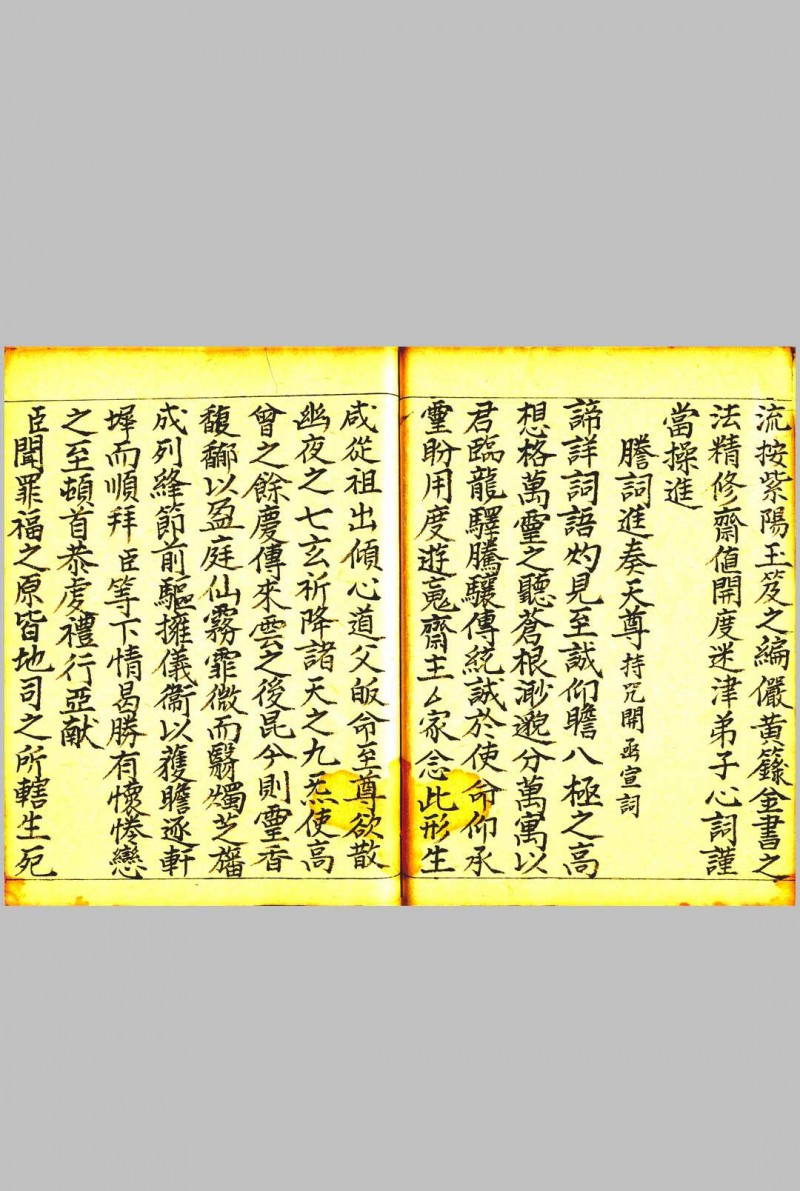 流按紫陽玉笈之編儼黃籙金書之
法精修齋值開度迷津弟子心詞謹
當操進
謄詞進奏天尊持咒開函宣詞
諦詳詞語灼見至誠仰瞻八極之高
想格萬靈之聽蒼根渺邈分萬寓以
君臨龍驛騰驤傳統誠於使命仰承
靈盼用度遊㝠齋主厶家念此形生
咸從祖出傾心道父皈命至尊欲散
幽夜之七玄祈降諸天之九炁使高
曾之餘慶傳來雲之後昆兮則靈香
馥郁以盈庭仙霧霏微而翳燭芝旛
成列絳節前驅擁儀衛以蒦瞻逐軒
墀而順拜臣等下情曷勝有懷惓戀
之至頓首恭虔禮行亞献
臣聞罪福之原皆地司之所轄生死